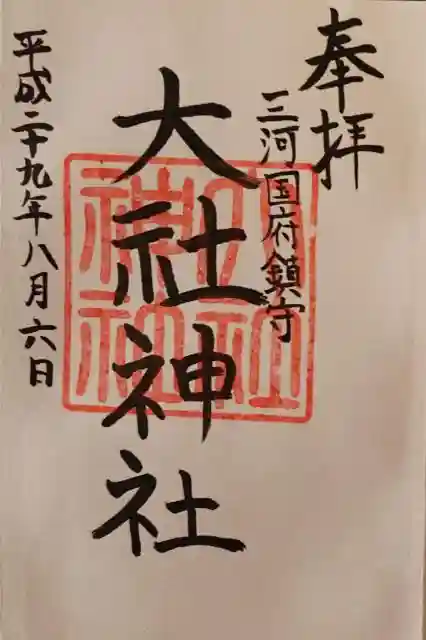 奉拝
三河国府鎮守
大社神社
平成二十九年八月六日
大社
神社